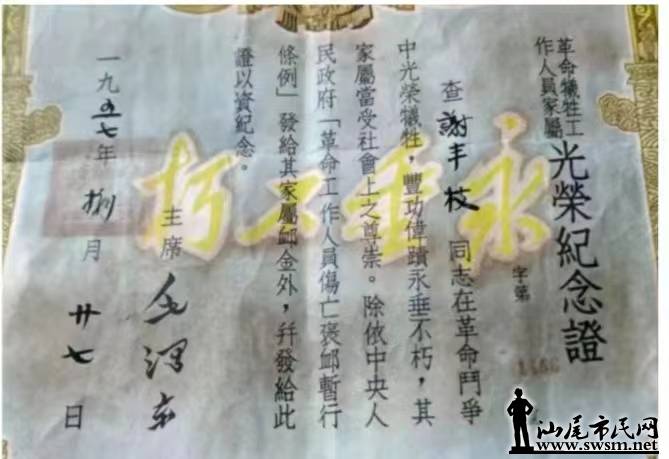 革命犧牲工
作人員家屬
光榮紀念證
字第
查謝丰枝同志在革命鬥爭
中光榮犧牲，豐功偉蹟永垂不朽，其
家屬當受社會上之尊崇。除依中央人
民政府「革命工作人員傷亡褒卹暫行
條例」發給其家屬卹金外，幷發給此
證以資紀念。
主席毛澤东
一九五七年捌月廿七日
永垂不朽
汕尾市民网
www.swsm.net